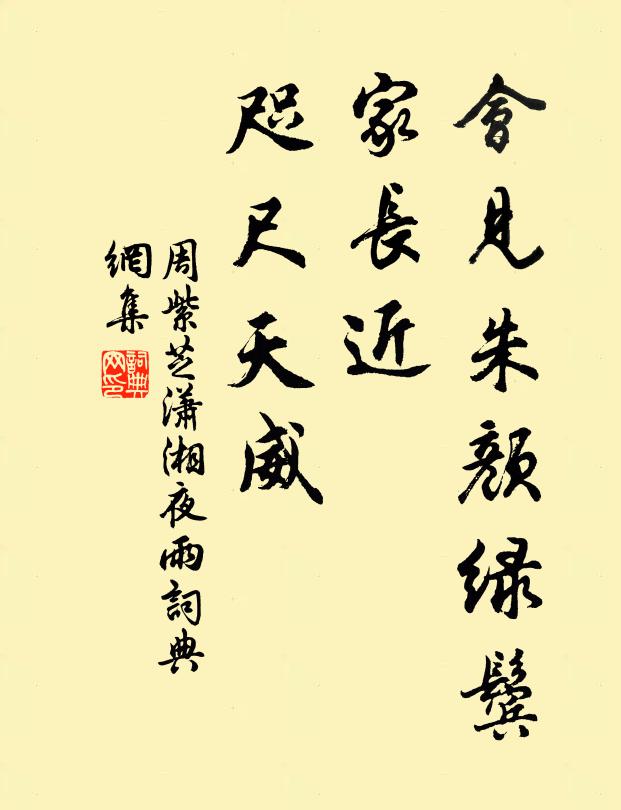 會見朱顏綠鬢
家長近
咫尺天威
周紫芝瀟湘夜雨詞典
網集
詞典
网印